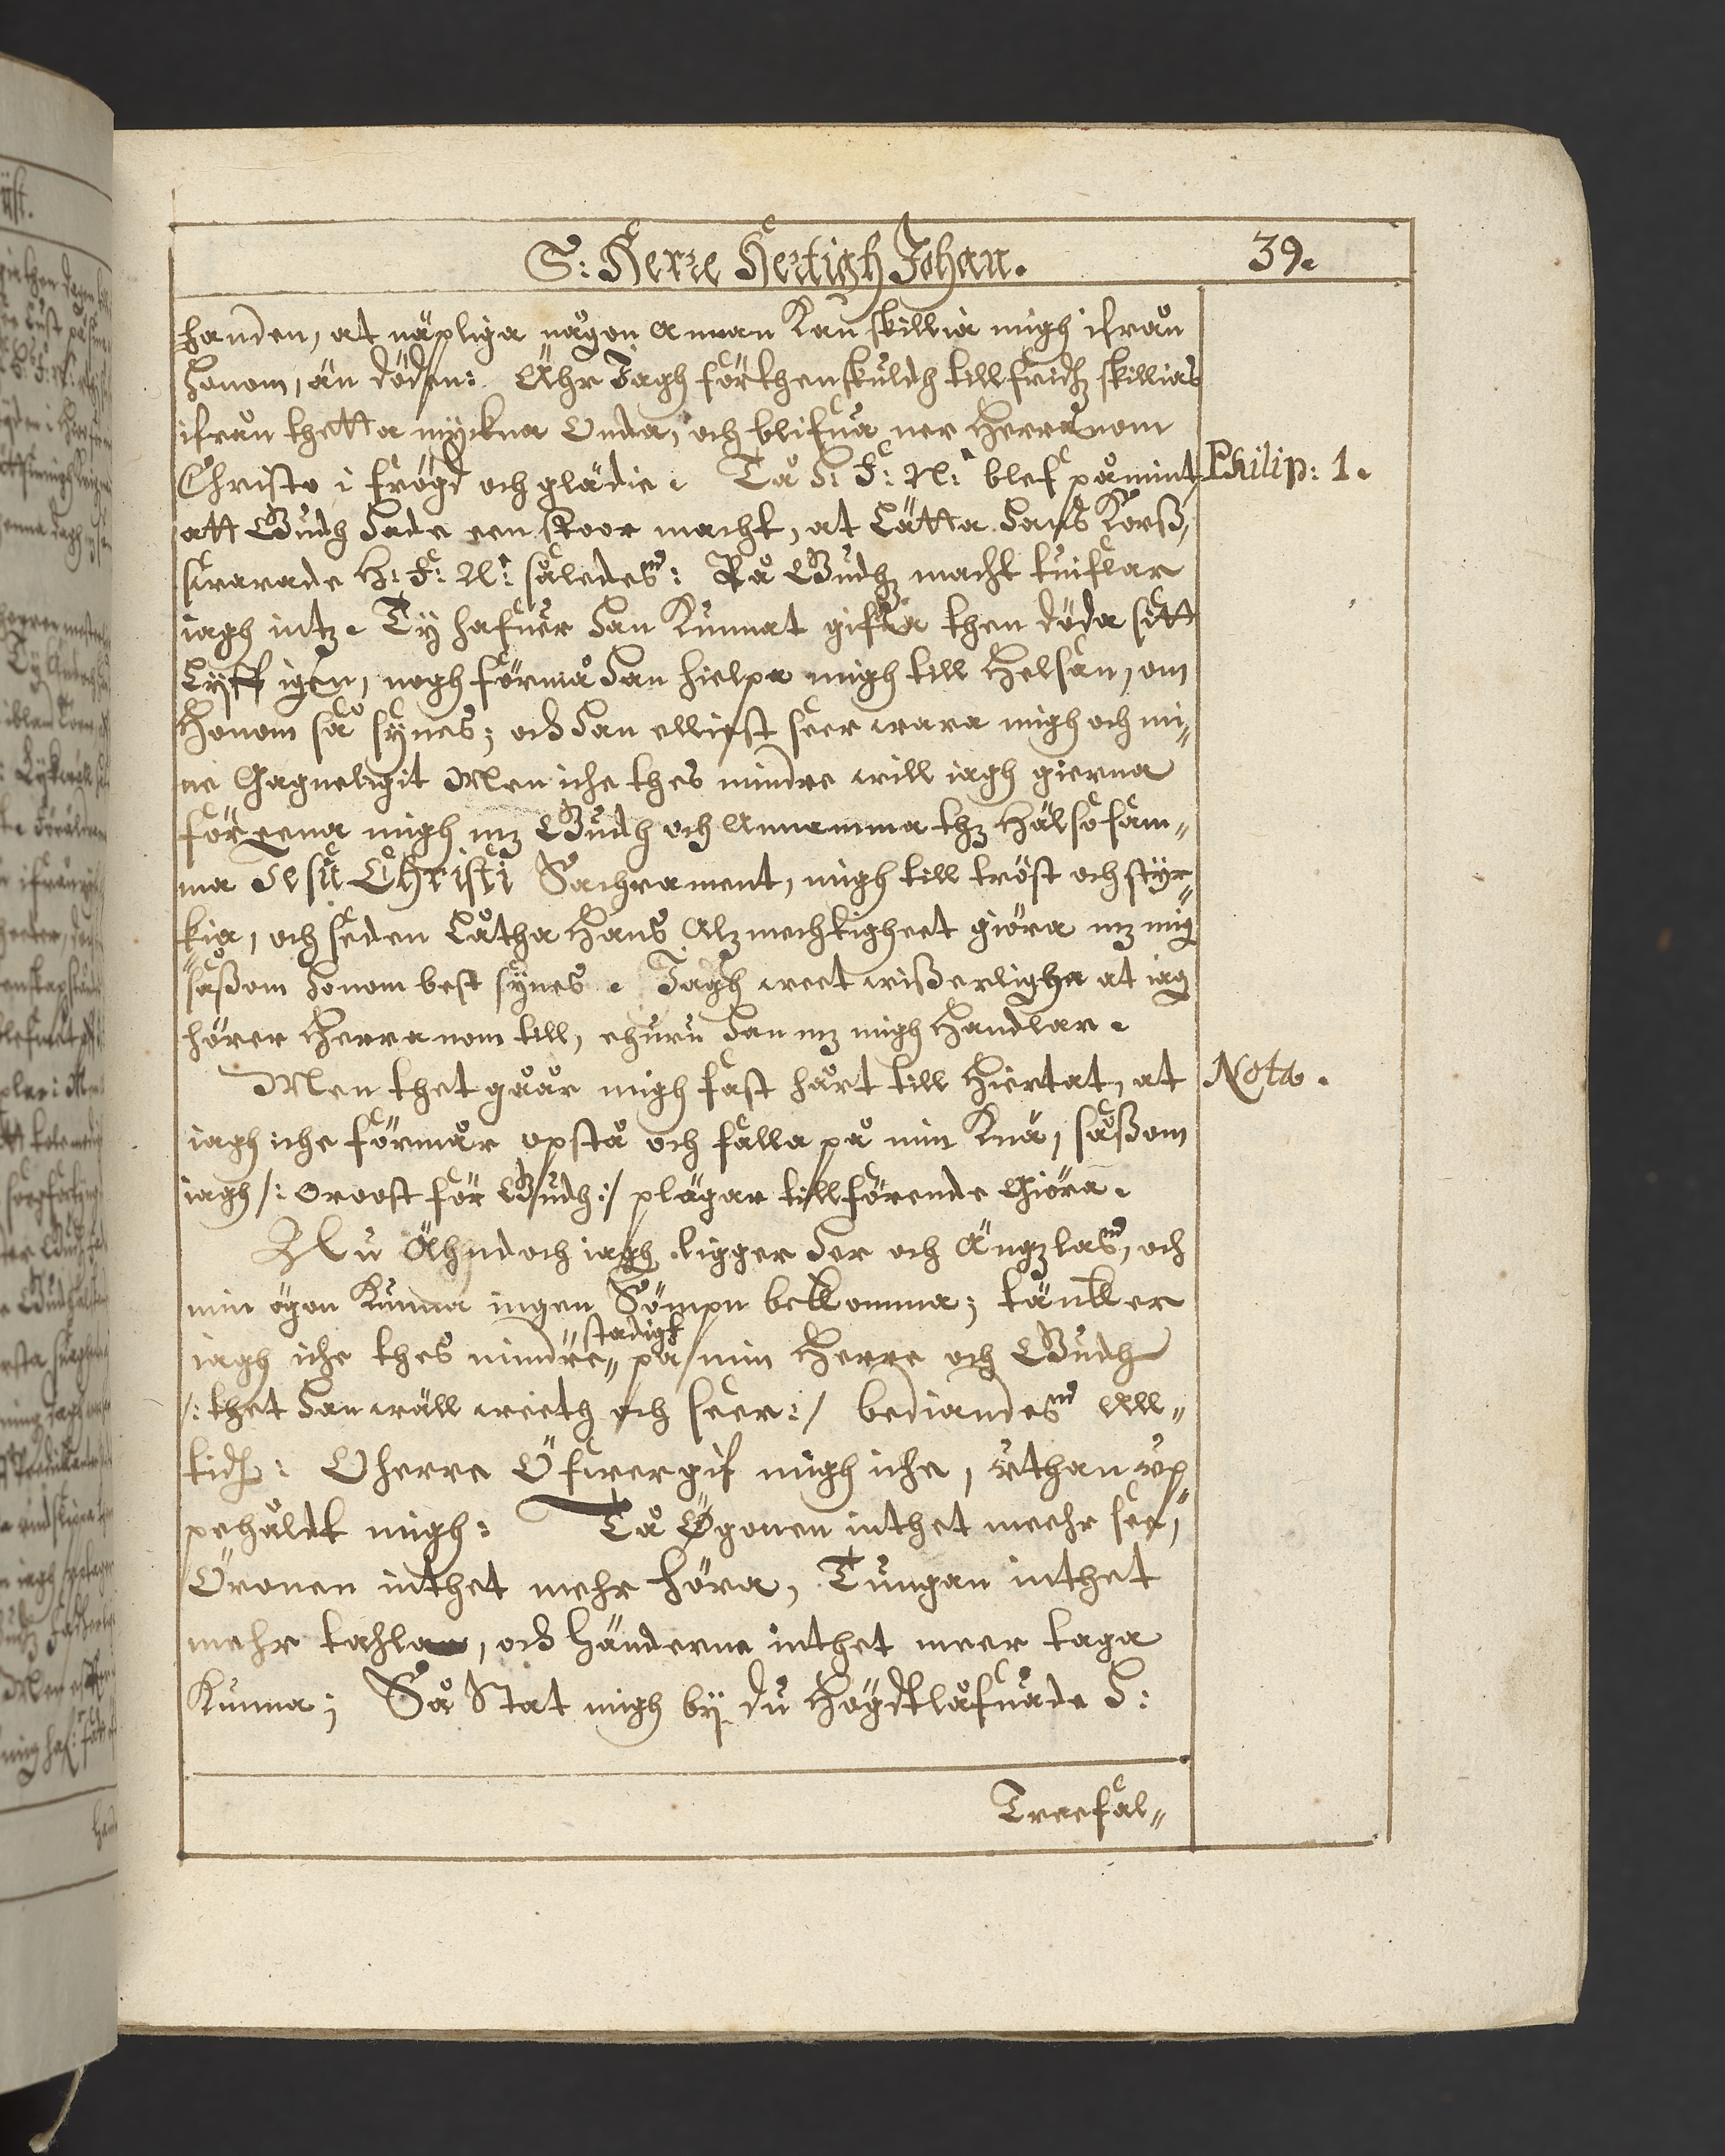 S: Herre Hertigh Johan.
39.
handen, at näpliga någon annan Kan skillia migh ifrån
honom, än döden: Ähr Jagh förthenskuldh tillfridz skillias
ifrån thetta myckna Onda, och blifua när Herranom
Christo i frögd och glädie. Tå H: F: N: blef påmint
Philip: 1.
att Gudh hade een stoor macht, at Lätta hans Korß,
swarade H: F: N: således: På Gudz macht tuiflar
iagh intz. Ty hafuer han Kunnat gifua then döda sitt
Lyff igen, nogh förmå han hielpa migh till Helsan, om
Honom så synes; och han elliest seer wara migh och mi„
ne Gagneligit Men iche thes mindre will iagh gierna
förreena migh mz Gudh och Annamma thz Hälsosam„
ma Jesu Christi Sachrament, migh till tröst och styr„
kia, och seden Låtha Hans Alzmechtigheet giöra mz mig
såßom honom best synes. Jagh weet wißerligha at iag
hörer Herranom till, ehuru han mz migh Handlar.
Men thet gåår migh fast hårt till Hiertat, at
Nota.
iagh iche förmår opstå och falla på min Knä, såßom
iagh /: oroost för Gudh :/ plägar tillförende Giöra.
Nu Ähndoch iagh ligger her och Ängzlas, och
min ögon Kunna ingen Sömpn bekomma; tänker
iagh iche thes mindre „stadigt„ på min Herre och Gudh
/: thet han wäll weeth och seer :/ bediandes All„
tidh: O herre Öfwergif migh iche, uthan up„
pehåldt migh: Tå Ögonen inthet meehr see,
Öronen inthet mehr höra, Tungan inthet
mehr tahla, och Händerne inthet meer taga
Kunna; Så Stat migh by du Högdtlåfuade H:
Treefal„